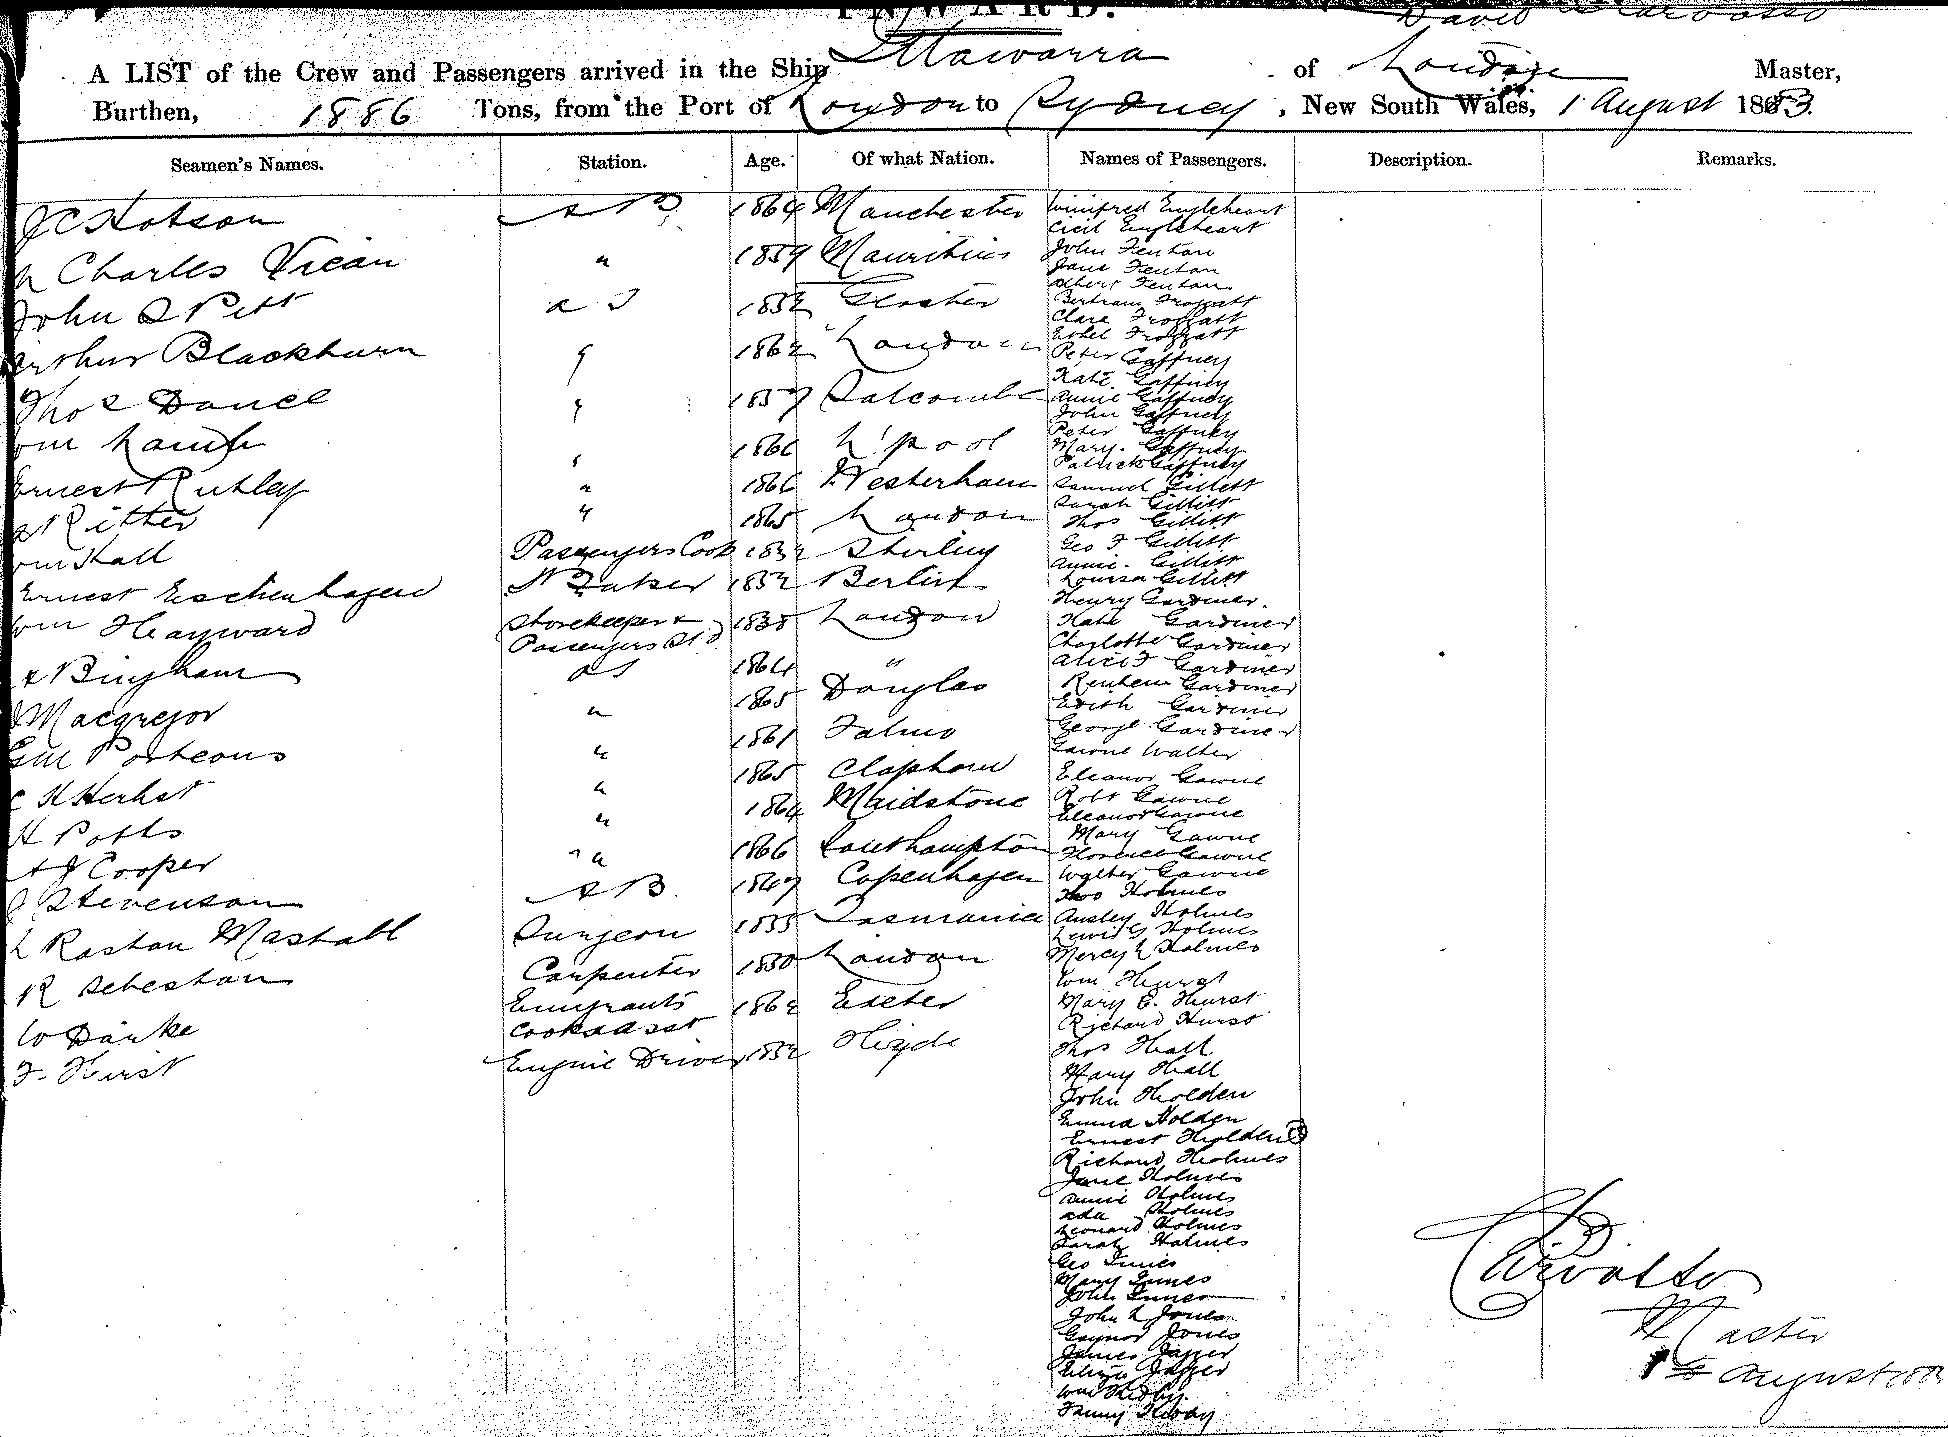 INWARD.
David Carvosso
A LIST of the Crew and Passengers arrived in the Ship Illawarra of London Master,
Burthen, 1886 Tons, from the Port of London to Sydney, New South Wales, 1 August 1883.
Seamen's Names. Station. Age. Of what Nation. Names of Passengers. Description. Remarks.
J C Hobson A B 1864 Manchester
Charles Vican " 1859 Mauritius
John S Pitt O S 1852 Gloster
Arthur Blackburn " 1862 London
Thos Dance " 1857 Salcombe
Wm Lamb " 1866 L'pool
Ernest Rutley " 1866 Westerham
Ritter " 1865 London
Wm Hall Passengers Cook 1832 Stirling
Ernest Eschenhagen Baker 1852 Berlin
Wm Hayward Storekeeper & Passengers Std 1838 London
Bingham O S 1864 "
Macgregor " 1865 Douglas
Porteous " 1861 Falmo
Herbst " 1865 Clapham
H Potts " 1864 Maidstone
A J Cooper " 1866 Southampton
J Stevenson A B. 1847 Copenhagen
L Rostan Mashall Surgeon 1835 Tasmania
R Sebestan Carpenter 1830 London
W Darke Emigrants Cooks asst 1862 Exeter
F. Hirst Engine Driver 1852 Hyde
Winifred Engleheart
Cicil Engleheart
John Fenton
Jane Fenton
Albert Fenton
Bertram Froggatt
Clare Froggatt
Ethel Froggatt
Peter Gaffney
Kate Gaffney
Annie Gaffney
John Gaffney
Peter Gaffney
Mary Gaffney
Patrick Gaffney
Samuel Gillett
Sarah Gillitt
Thos Gillitt
Geo F Gillitt
Annie Gillitt
Louisa Gillitt
Henry Gardiner.
Kate Gardiner
Charlotte Gardiner
Alice F Gardiner
Reuben Gardiner
Edith Gardiner
George Gardiner
Gawne Walter
Eleanor Gawne
Robt Gawne
Eleanor Gawne
Mary Gawne
Florence Gawne
Walter Gawne
Thos Holmes
Ansley Holmes
Lewis G Holmes
Mercy L Holmes
Wm Hurst
Mary E. Hurst
Richard Hurst
Thos Heall
Mary Heall
John Holden
Emma Holden
Ernest Holden
Richard Holmes
Jane Holmes
Annie Holmes
Ada Holmes
Leonard Holmes
Sarah Holmes
Geo Innes
Mary Innes
John Innes
John L Jones
Gaynor Jones
James Jagger
Eliza Jagger
Wm Kirby.
Fanny Kirby
D Carvosso
Master
1st August 1883